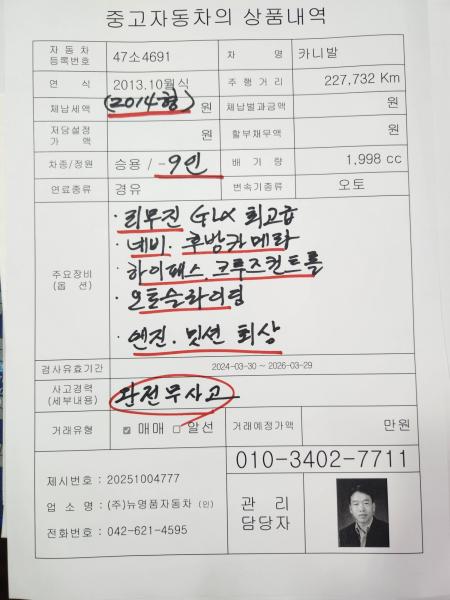 중고자동차의 상품내역
자 동 차 등록번호 47소4691 차 명 카니발
연 식 2013.10월식 주 행 거 리 227,732 Km
(2014형)
체납세액 원 체납벌과금액 원
저당설정 가 액 원 할부채무액 원
차종/정원 승용 / -9인 배 기 량 1,998 cc
연료종류 경유 변속기종류 오토
주요장비 (옵 션)
· 리무진 GLX 최고급
· 네비. 후방카메라
· 하이패스. 크루즈컨트롤
· 오토슬라이딩
· 엔진. 밋션 최상
검사유효기간 2024-03-30 ~ 2026-03-29
사고경력 (세부내용) 완전무사고
거래유형 ☑ 매매 □ 알선 거래예정가액 만원
010-3402-7711
제시번호 : 20251004777
업 소 명 : (주)뉴명품자동차 (인)
전화번호 : 042-621-4595
관 리
담당자